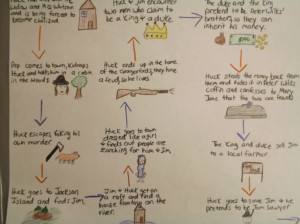 widow and Miss Watson
and is being forced to
become civilized.
Pap comes to town, kidnaps
Huck and holds him in a cabin
in the woods
Huck escapes, faking his
own murder
Huck goes to Jackson
Island and finds Jim.
Huck & Jim encounter
two men who claim to
be a king & a duke.
Huck ends up in the home
of the Grangerfords, they have
a feud, so he leaves
Huck goes to town
dressed like a girl
& finds out people are
searching for him & Jim.
Jim & Huck get on
a raft and find a
house floating on
the river.
The duke and the king
pretend to be Peter Wilks'
brothers so they can
inherit his money.
Huck steals the money back from
them and hides it in Peter Wilks
coffin and confesses to Mary
Jane that the two are frauds
The King and duke sell Jim
to a local farmer
Huck goes to save Jim & he
pretends to be Tom Sawyer